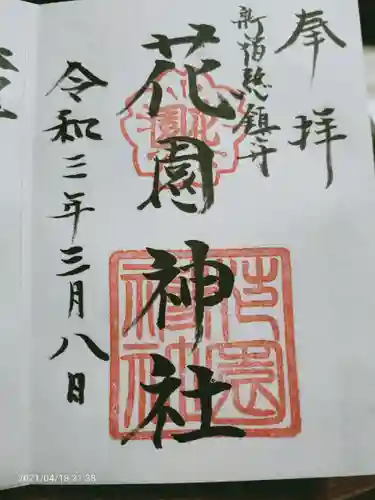 奉拝
新宿総鎮守
花園神社
令和三年三月八日
花園神社
2021/04/18 21:38